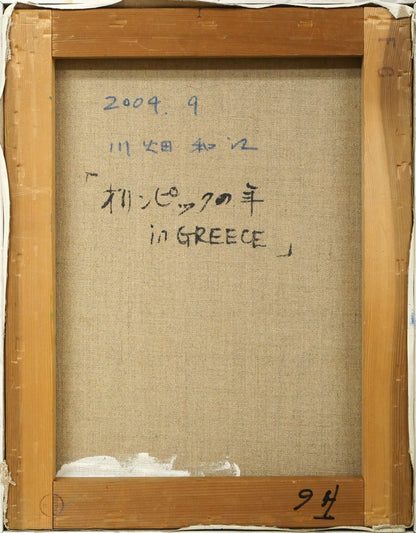 2004. 9
川畑 和江
「オリンピックの年
in GREECE」
F6